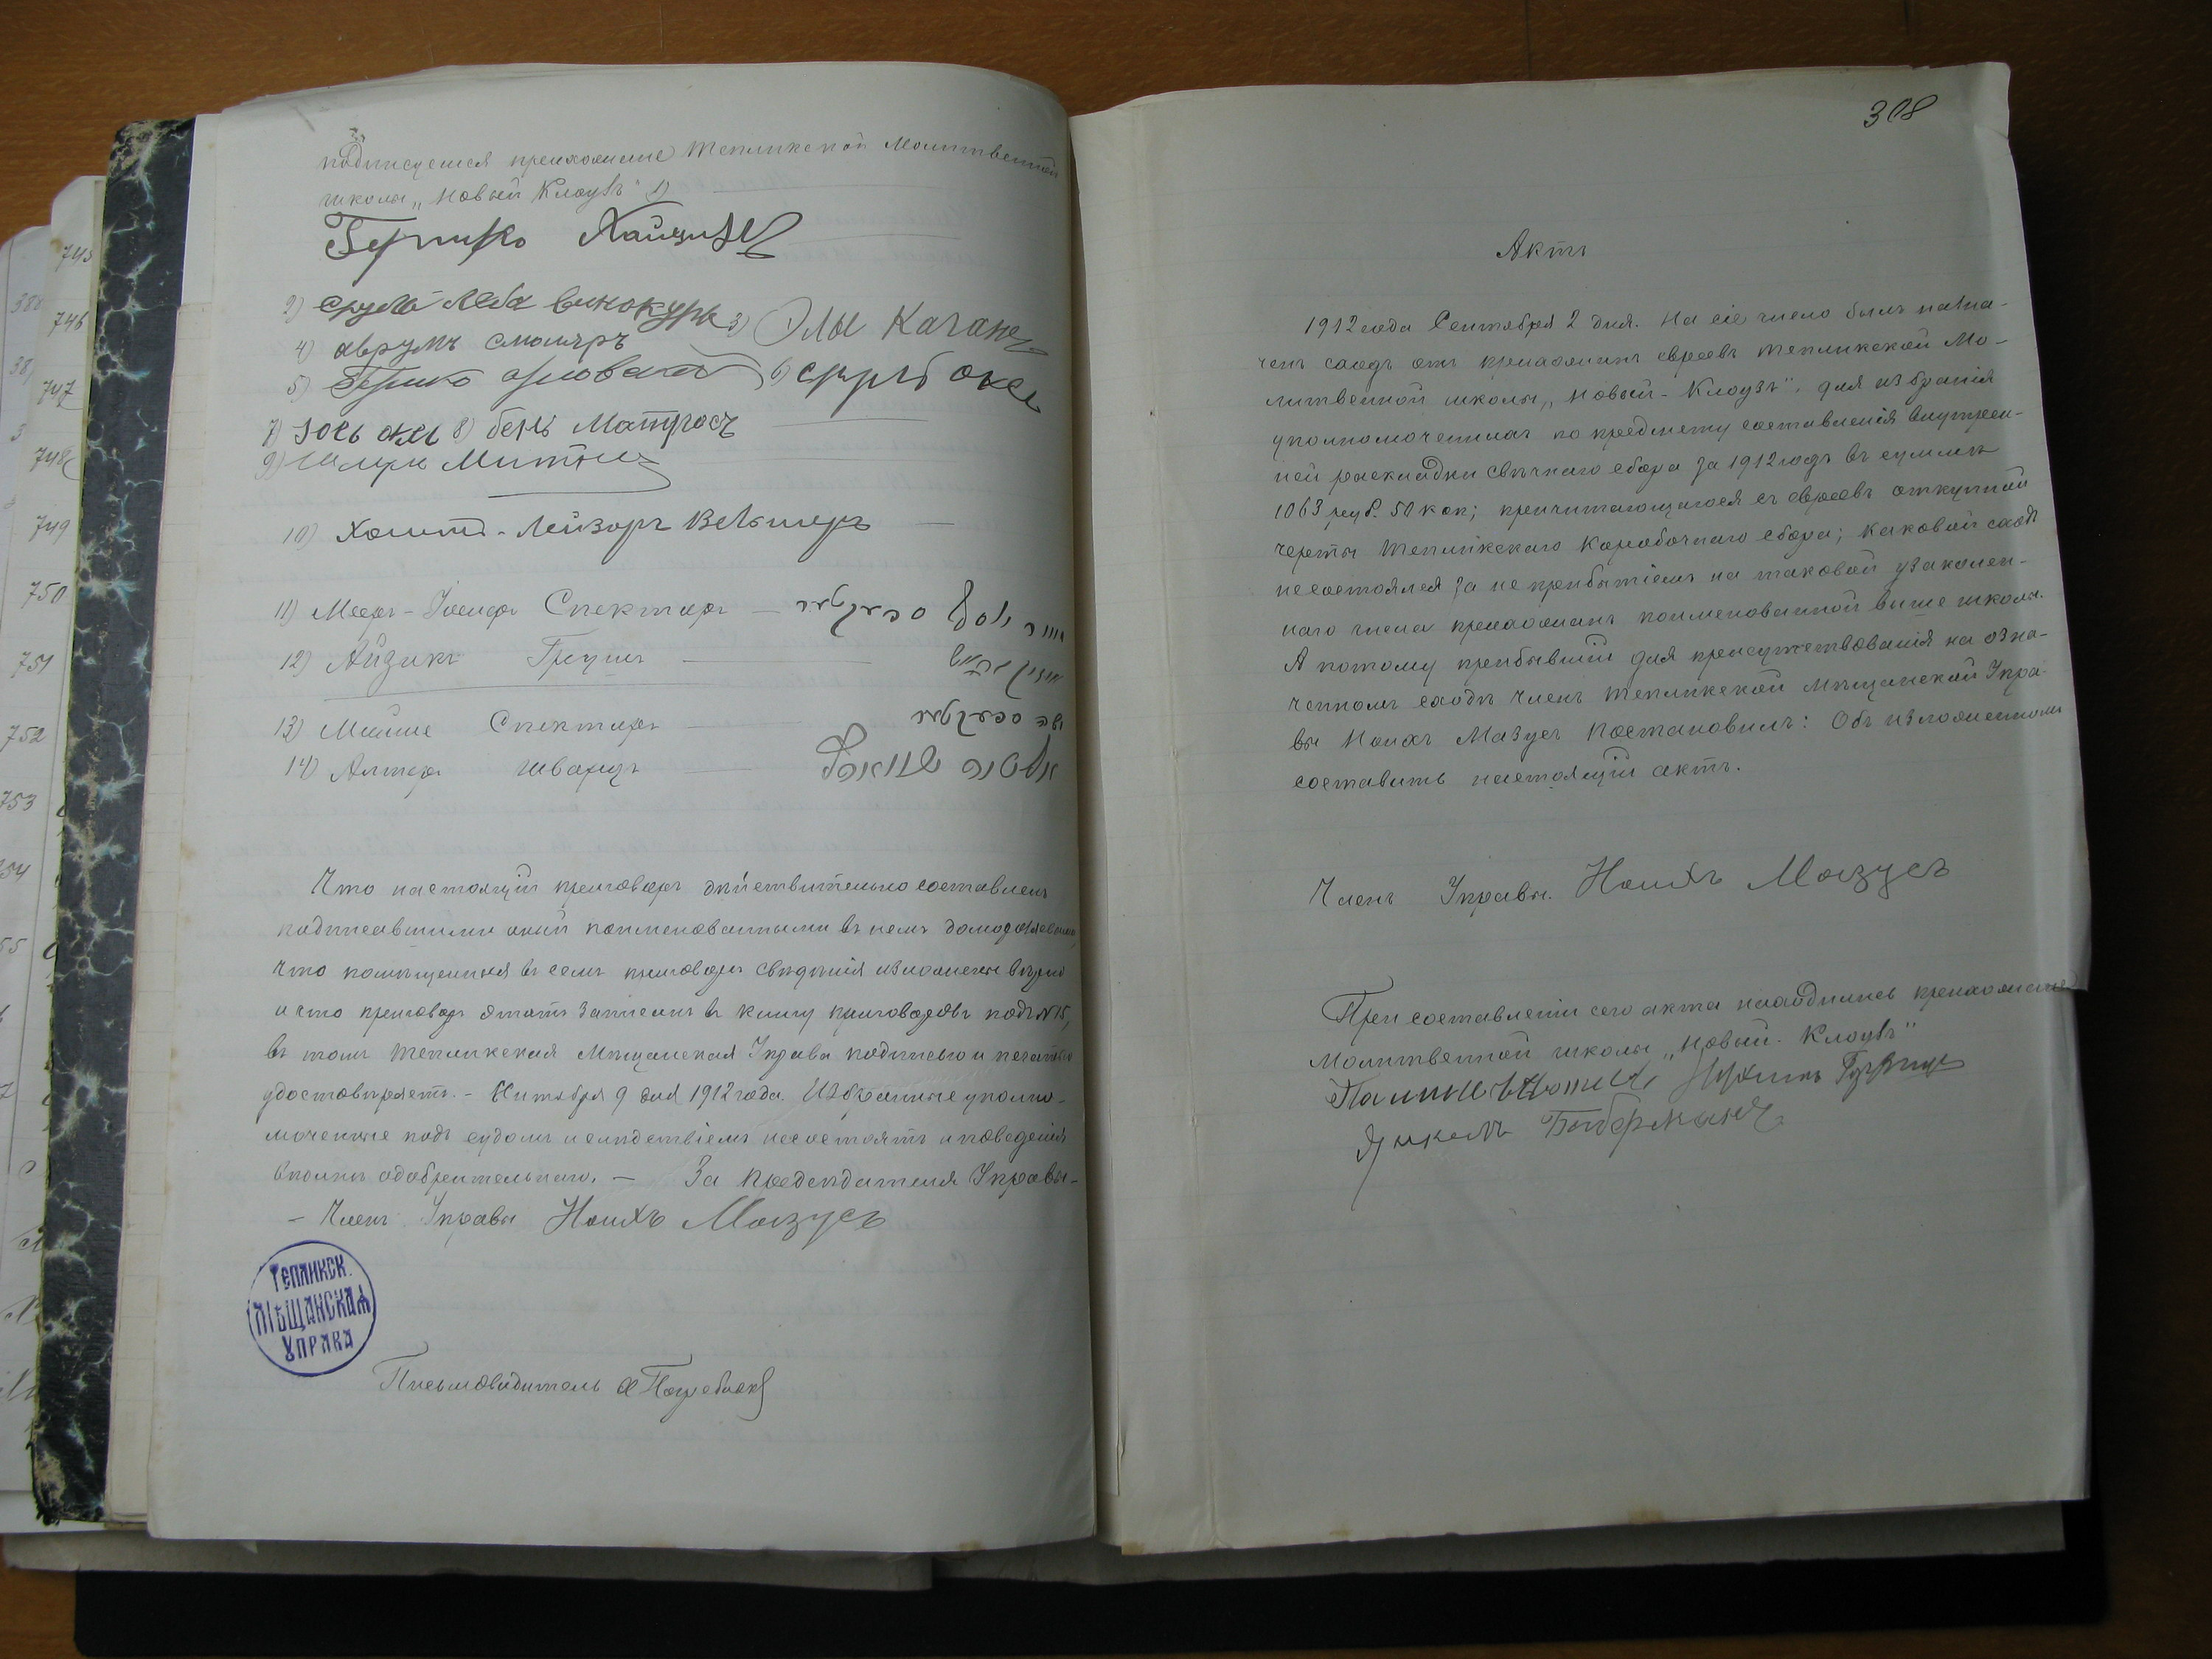 подписуемся прихожане Тепликской Молитвенной
школы „Новый Клоузъ“ 1)
Гершко Хайцинъ
2) Сруль Леба Винокуръ 3) Элы Каганъ
4) Аврумъ Смоляръ
5) Гершко 6) Сруль Оксъ
7) Іось Оксъ 8) бень Матусъ
9) Шлема
10) Лейзоръ
11) Меер-Іосифъ Спекторъ — מאיר יוסף ספעקטאר
12) Айзикъ Грушъ — אייזיק
13) Мойше Спекторъ — משה ספעקטאר
14) Алтеръ Шварцъ — אלטער שווארץ
Что настоящій приговоръ дѣйствительно составленъ
подписавшими оный поименованными въ немъ домохозяевами,
что помѣщенныя въ семъ приговоръ свѣдѣнія изложены вѣрно
и что приговоръ этотъ записанъ въ книгу приговоровъ подъ № 15,
въ томъ Тепликская Мѣщанская Управа подписью и печатью
удостовѣряетъ. – Сентября 9 дня 1912 года. Избранные уполно-
моченные подъ судомъ и слѣдствіемъ не состоятъ и поведенія
вполнѣ одобрительнаго. — За Предсѣдателя Управы –
– Членъ Управы Ноихъ Мазусъ
Тепликск.
МѢЩАНСКАЯ
УПРАВА
Письмоводитель
308
Актъ
1912 года Сентября 2 дня. На сіе число былъ назна-
ченъ сходъ отъ прихожанъ евреевъ Тепликской Мо-
литвенной школы „Новый-Клоузъ“, для избранія
уполномоченныхъ по предмету составленія внутрен-
ней раскладки свѣчнаго сбора за 1912 годъ въ суммѣ
1063 руб. 50 коп; причитающагося съ евреевъ откупной
черты Тепликскаго Коробочнаго сбора; каковой сходъ
несостоялся за не прибытіемъ на таковой узаконен-
наго числа прихожанъ поименованной выше школы.
А потому прибывшій для присутствованія на озна-
ченномъ сходѣ Членъ Тепликской Мѣщанской Упра-
вы Ноихъ Мазусъ Постановилъ: Объ изложенномъ
составить настоящій актъ.
Членъ Управы. Ноихъ Мазусъ
При составленіи сего акта находились прихожане
Молитвенной школы „Новый-Клоузъ“
Гурвицъ
Янкель Боберманъ
745
746
747
748
749
750
751
752
753